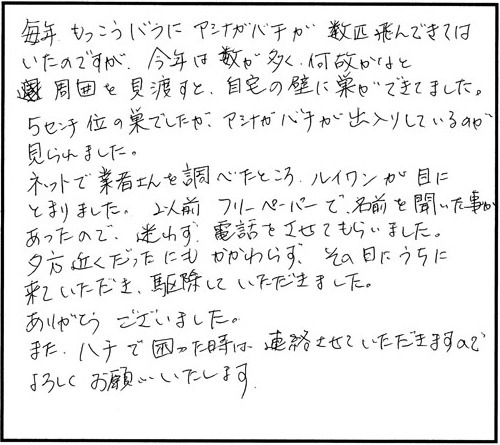 毎年 もっこうバラに アシナガバチが 数匹 飛んできては
いたのですが、今年は数が多く、何故かなと
周囲を見渡すと、自宅の壁に巣ができてました。
5センチ位の巣でしたが、アシナガバチが出入りしているのが
見られました。
ネットで業者さんを調べたところ、ルイワンが目に
とまりました。以前 フリーペーパーで、名前を聞いた事が
あったので、迷わず、電話をさせてもらいました。
夕方近くだったにもかかわらず、その日にうちに
来ていただき、駆除していただきました。
ありがとう ございました。
また、ハチで困った時は、連絡させていただきますので
よろしく お願いいたします。